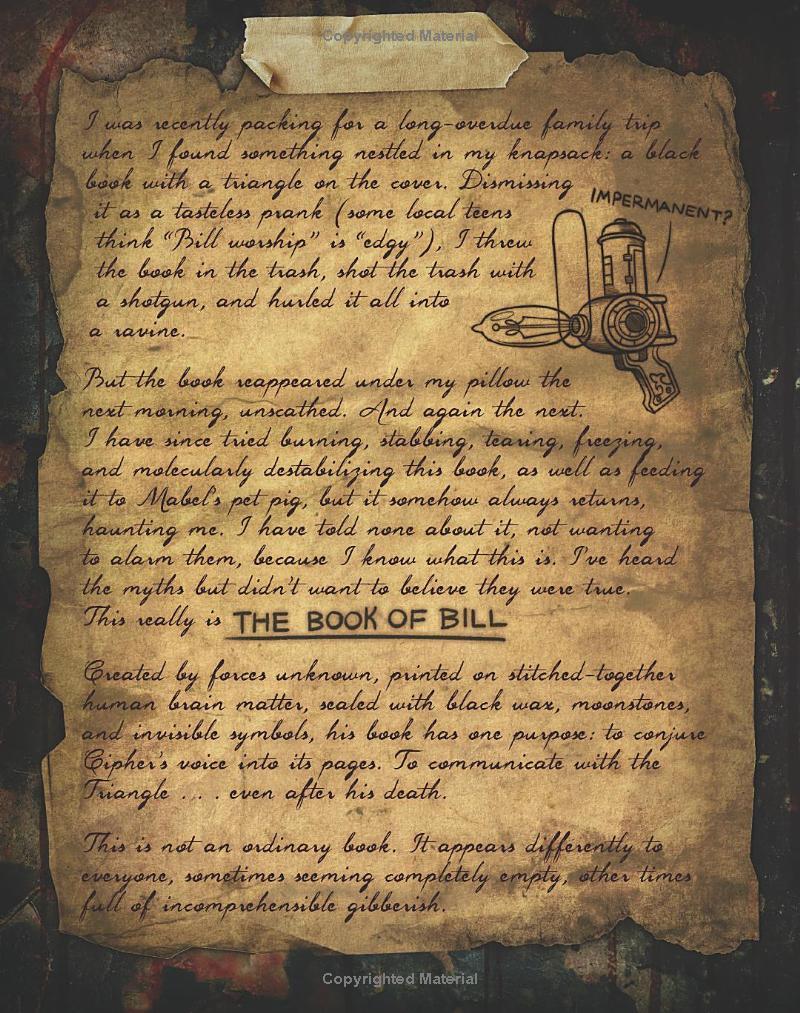 Copyrighted Material
I was recently packing for a long-overdue family trip
when I found something nestled in my knapsack: a black
book with a triangle on the cover. Dismissing
it as a tasteless prank (some local teens
think “Bill worship” is “edgy”), I threw
the book in the trash, shot the trash with
a shotgun, and hurled it all into
a ravine.
IMPERMANENT?
But the book reappeared under my pillow the
next morning, unscathed. And again the next.
I have since tried burning, stabbing, tearing, freezing,
and molecularly destabilizing this book, as well as feeding
it to Mabel's pet pig, but it somehow always returns,
haunting me. I have told none about it, not wanting
to alarm them, because I know what this is. I've heard
the myths but didn't want to believe they were true.
This really is THE BOOK OF BILL
Created by forces unknown, printed on stitched-together
human brain matter, sealed with black wax, moonstones,
and invisible symbols, his book has one purpose: to conjure
Cipher's voice into its pages. To communicate with the
Triangle . . . even after his death.
This is not an ordinary book. It appears differently to
everyone, sometimes seeming completely empty, other times
full of incomprehensible gibberish.
Copyrighted Material